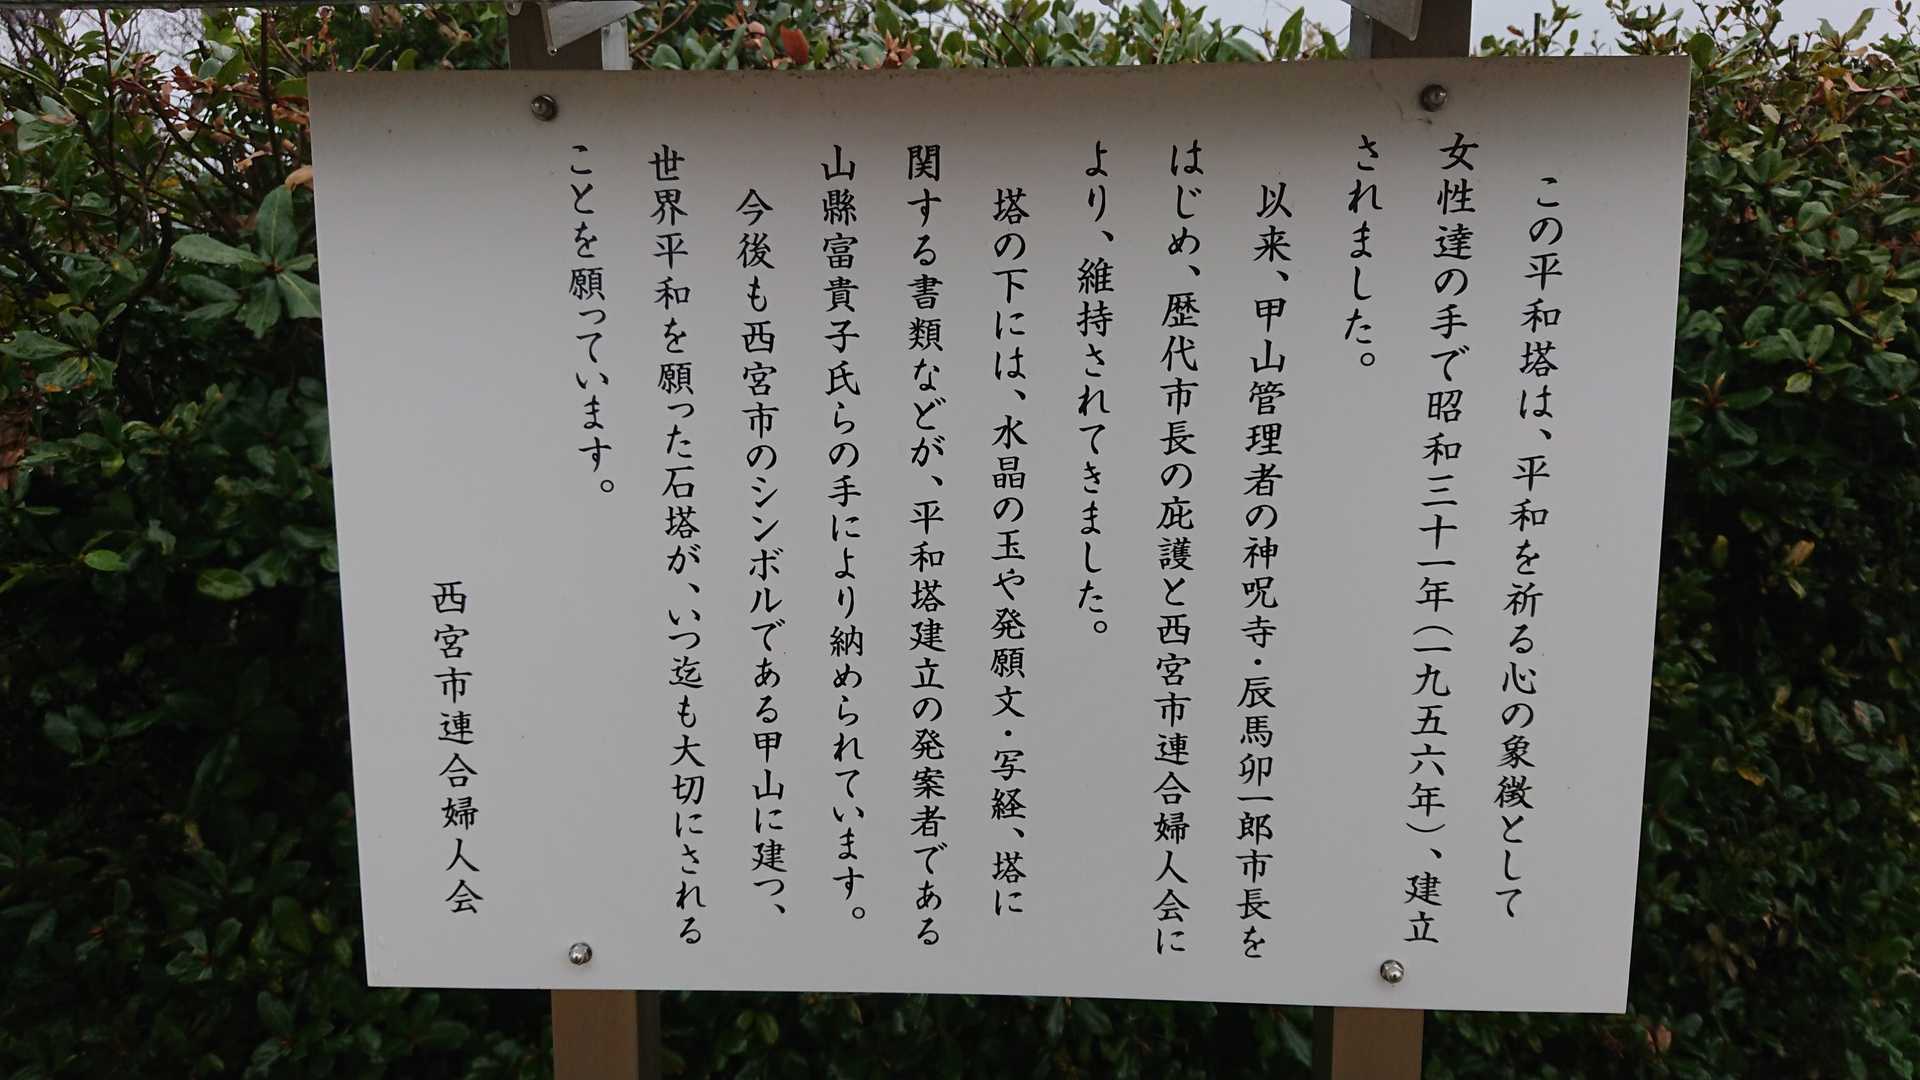 この平和塔は、平和を祈る心の象徴として
女性達の手で昭和三十一年（一九五六年）、建立
されました。
以来、甲山管理者の神呪寺・辰馬卯一郎市長を
はじめ、歴代市長の庇護と西宮市連合婦人会に
より、維持されてきました。
塔の下には、水晶の玉や発願文・写経、塔に
関する書類などが、平和塔建立の発案者である
山縣富貴子氏らの手により納められています。
今後も西宮市のシンボルである甲山に建つ、
世界平和を願った石塔が、いつ迄も大切にされる
ことを願っています。
西宮市連合婦人会